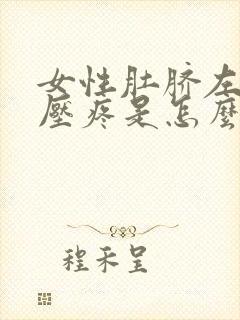 女性肚脐左
壓疼是怎麼
程禾呈